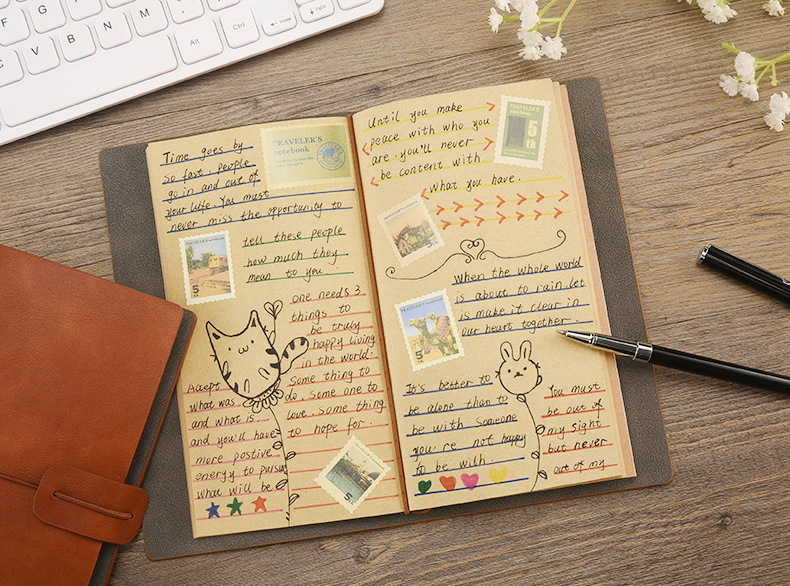 Time goes by
so fast, people
go in and out of
your life. You must
never miss the opportunity to
tell these people
how much they
mean to you.
one needs 3
things to
be truly
happy living
in the world:
some thing to
do, some one to
love, some thing
to hope for.
Accept
what was
and what is
and you'll have
more postive
energy to pursue
what will be.
TRAVELER'S
notebook
5
5
Until you make
peace with who you
are. you'll never
be content with
what you have.
TRAVELER'S
notebook
5th
When the whole world
is about to rain, let
is make it clear in
our heart together.
5
5
It's better to
be alone than to
be with someone
you're not happy
to be with.
You must
be out of
my sight
but never
out of my
C
V
B
N
M
Alt
Ctrl